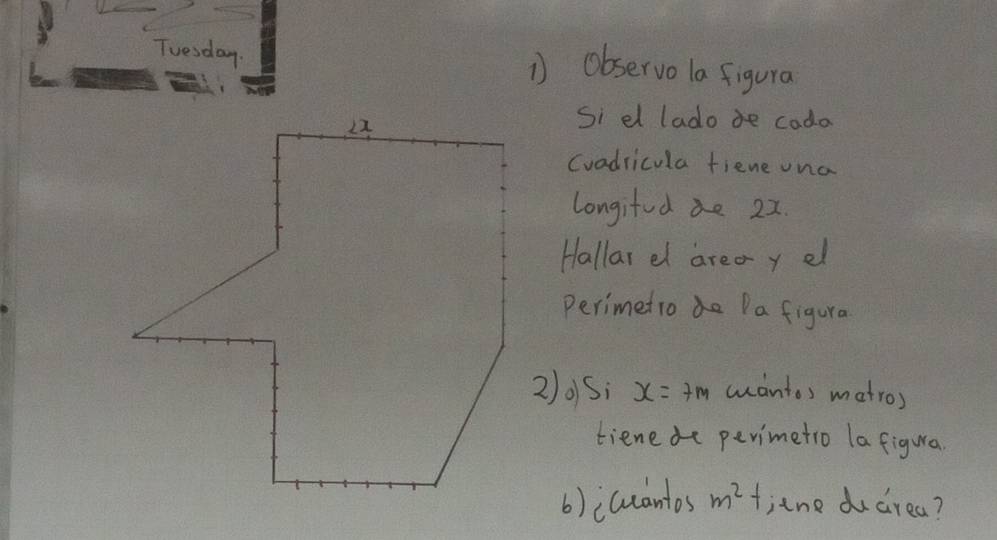 Tuesday.
2x
1) Observo la figura
Si el lado de cada
cuadricula tiene una
longitud de 2x.
Hallar el área y el
Perimetro de la figura
2) a) Si x = 7m cuántos matros
tiene de perimetro la figura.
b) ¿Cuántos m² tiene de área?